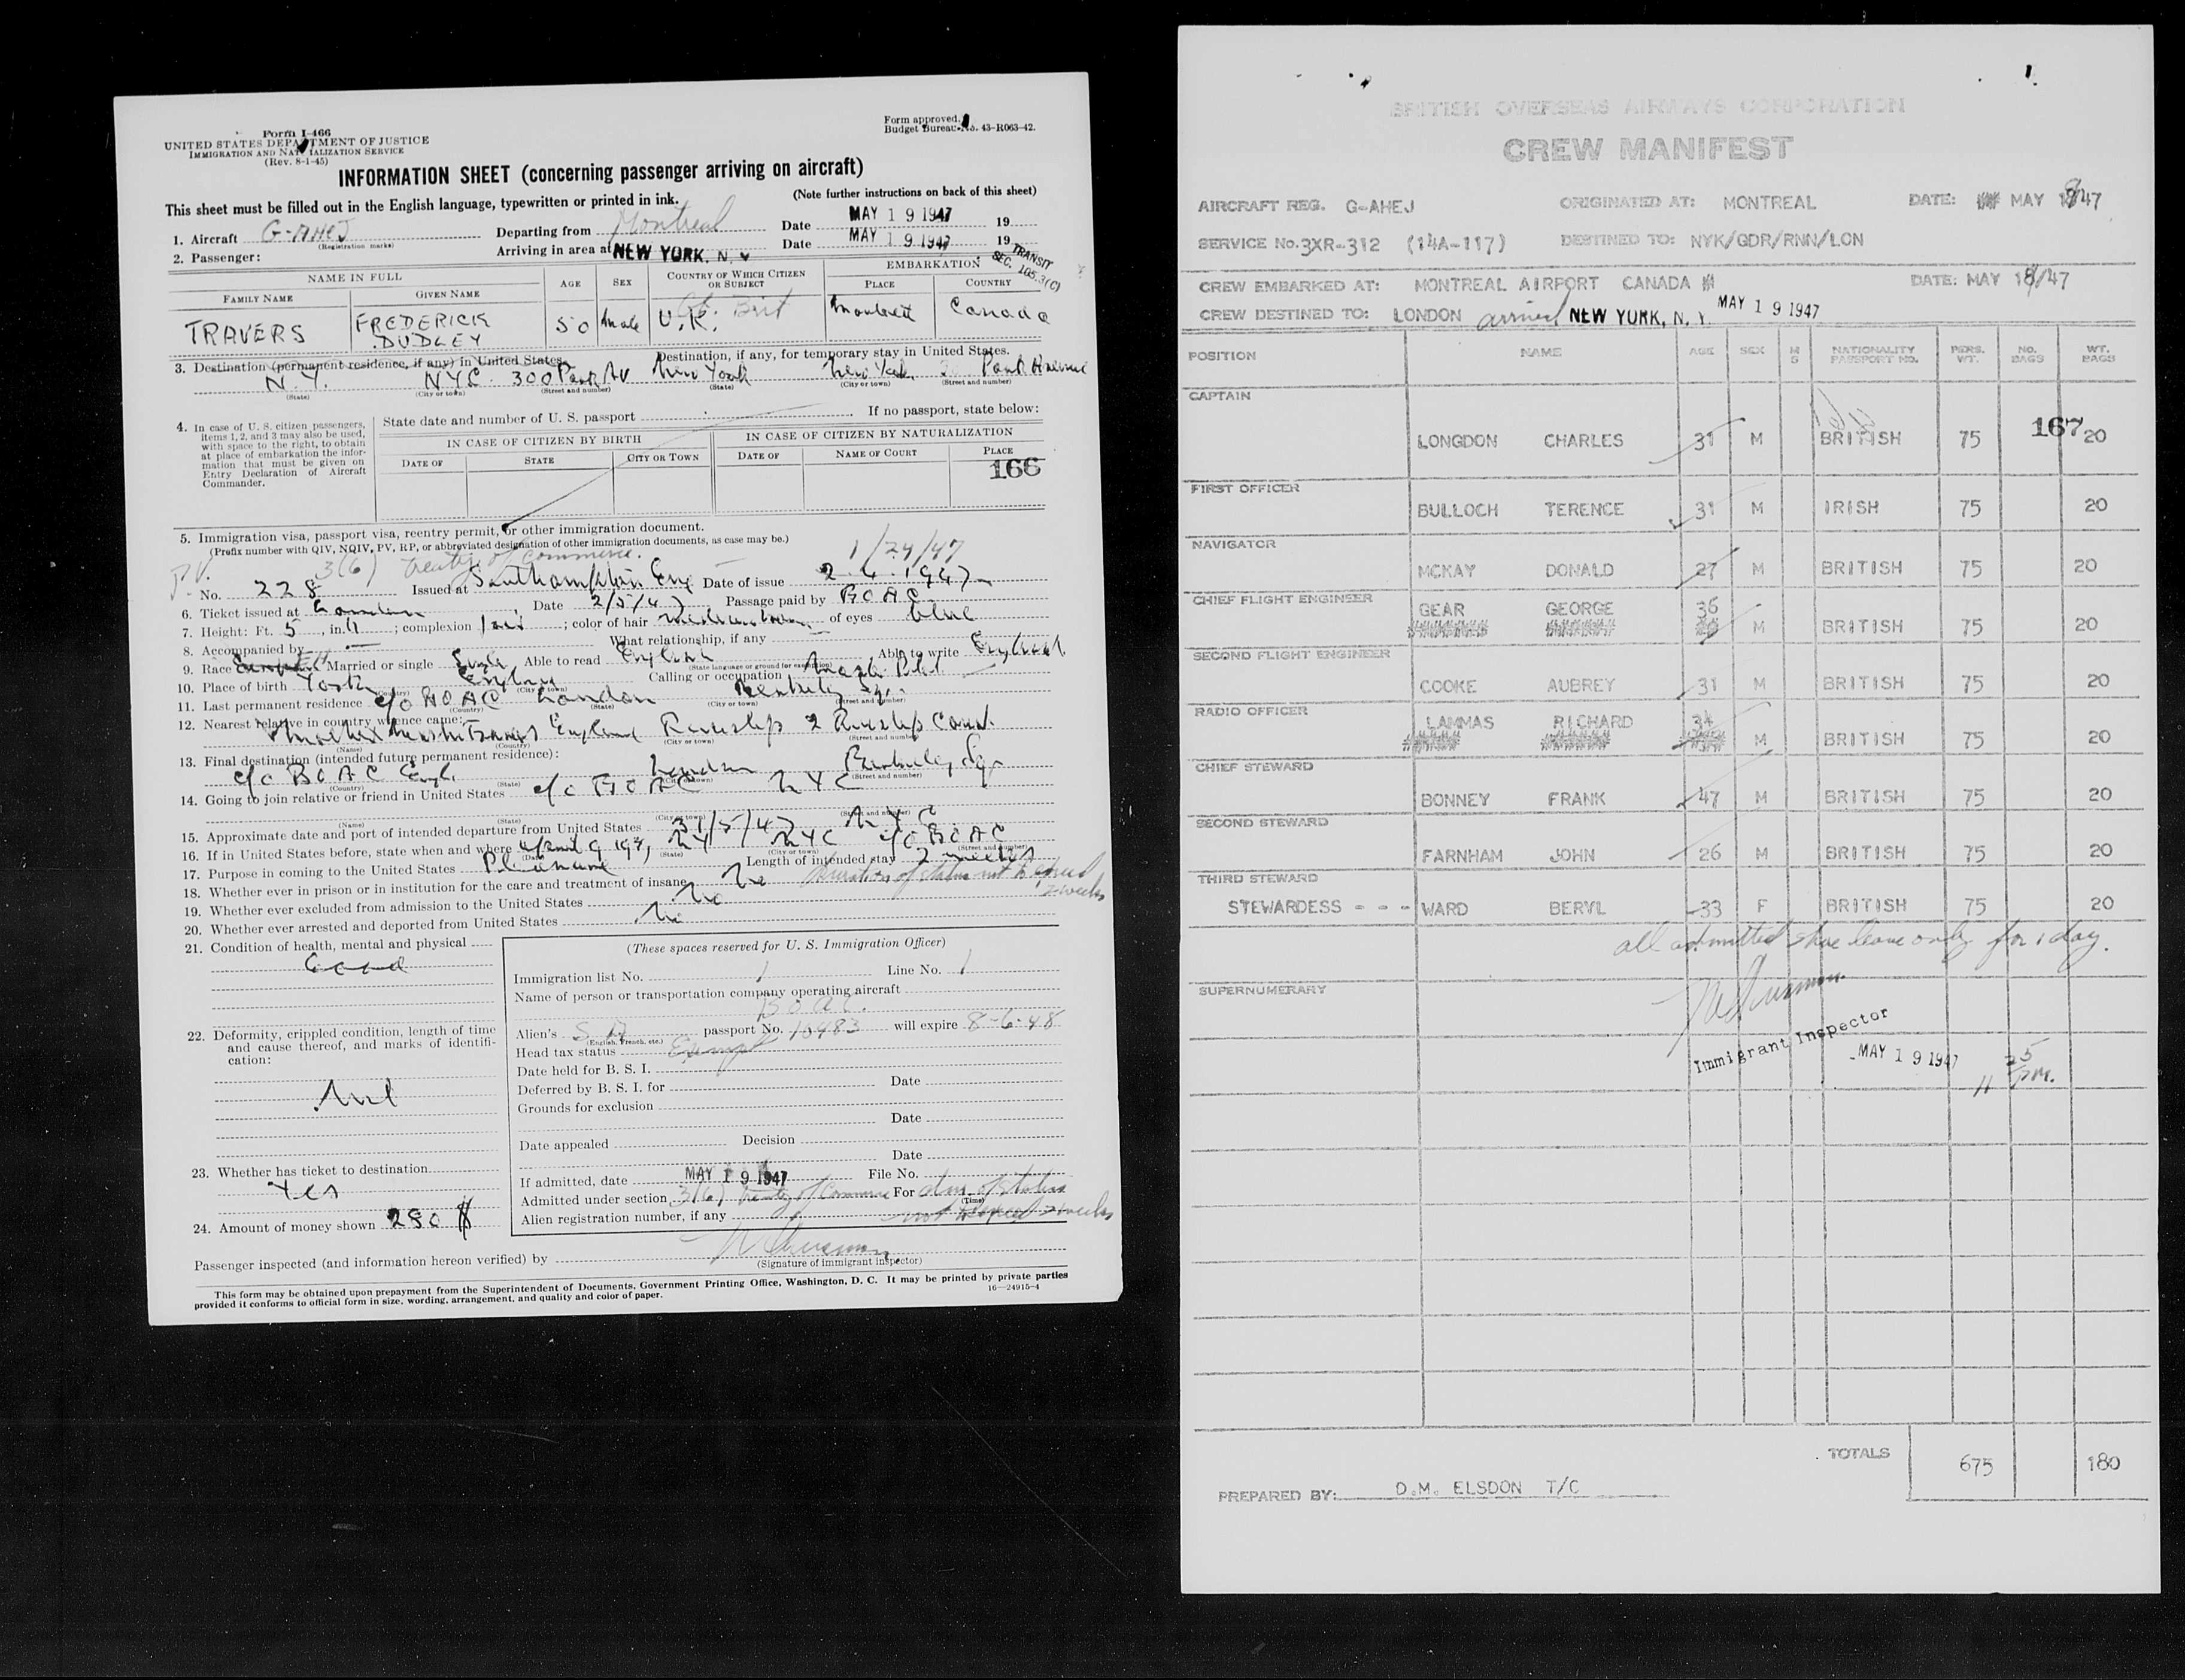 Form I-466
UNITED STATES DEPARTMENT OF JUSTICE
IMMIGRATION AND NATURALIZATION SERVICE
(Rev. 8-1-45)
Form approved.
Budget Bureau No. 43-R063-42.
INFORMATION SHEET (concerning passenger arriving on aircraft)
This sheet must be filled out in the English language, typewritten or printed in ink.
(Note further instructions on back of this sheet)
1. Aircraft G-AHEJ Departing from Montreal Date MAY 19 1947 19
(Registration marks)
2. Passenger: Arriving in area at NEW YORK, N. Y. Date MAY 19 1947 19
TRANSIT
SEC. 105.3(C)
NAME IN FULL AGE SEX COUNTRY OF WHICH CITIZEN OR SUBJECT EMBARKATION
FAMILY NAME GIVEN NAME PLACE COUNTRY
TRAVERS FREDERICK DUDLEY 50 Male U.K. Gt. Brit Montreal Canada
3. Destination (permanent residence, if any) in United States. Destination, if any, for temporary stay in United States.
N.Y. NYC 300 Park Av New York New York Park Avenue
(State) (City or town) (Street and number) (State) (City or town) (Street and number)
4. In case of U. S. citizen passengers, items 1, 2, and 3 may also be used, with space to the right, to obtain at place of embarkation the information that must be given on Entry Declaration of Aircraft Commander.
State date and number of U. S. passport If no passport, state below:
IN CASE OF CITIZEN BY BIRTH IN CASE OF CITIZEN BY NATURALIZATION
DATE OF STATE CITY OR TOWN DATE OF NAME OF COURT PLACE
166
5. Immigration visa, passport visa, reentry permit, or other immigration document.
(Prefix number with QIV, NQIV, PV, RP, or abbreviated designation of other immigration documents, as case may be.)
P.V. 3(6) treaty of Commerce. 1/24/47
No. 228 Issued at Southampton Eng Date of issue 2.4.1947
6. Ticket issued at London Date 2/5/47 Passage paid by BOAC
7. Height: Ft. 5, in. 11; complexion fair; color of hair medium brown of eyes blue
8. Accompanied by — What relationship, if any —
9. Race Married or single Single Able to read English Able to write English
(State language or ground for exemption)
10. Place of birth York England Calling or occupation
(Country) (City or town)
11. Last permanent residence c/o BOAC London Berkeley Sq.
(Country) (State) (City or town) (Street and number)
12. Nearest relative in country whence came:
Mother England Ruislip 2 Ruislip Court
(Name) (Country) (City or town) (Street and number)
13. Final destination (intended future permanent residence):
c/o BOAC Engl. London Berkeley Sq.
(Country) (State) (City or town) (Street and number)
14. Going to join relative or friend in United States c/o BOAC NYC
(Name) (State) (City or town) (Street and number)
15. Approximate date and port of intended departure from United States 31/5/47 NYC
16. If in United States before, state when and where NY NYC c/o BOAC
(Date) (State) (City or town) (Street and number)
17. Purpose in coming to the United States Pleasure Length of intended stay 2 weeks
18. Whether ever in prison or in institution for the care and treatment of insane No Duration of status not to exceed 2 weeks
19. Whether ever excluded from admission to the United States No
20. Whether ever arrested and deported from United States No
21. Condition of health, mental and physical
Good
22. Deformity, crippled condition, length of time and cause thereof, and marks of identification:
Nil
23. Whether has ticket to destination
Yes
24. Amount of money shown 280 $
(These spaces reserved for U. S. Immigration Officer)
Immigration list No. 1 Line No. 1
Name of person or transportation company operating aircraft
B.O.A.C.
Alien's passport No. 10983 will expire 8-6-48
(English, French, etc.)
Head tax status Exempt
Date held for B. S. I.
Deferred by B. S. I. for Date
Grounds for exclusion
Date
Date appealed Decision
Date
If admitted, date MAY 19 1947 File No.
Admitted under section 3(6) treaty of Commerce For durn. of status
(Time)
Alien registration number, if any not to exceed 2 weeks
Passenger inspected (and information hereon verified) by
(Signature of immigrant inspector)
This form may be obtained upon prepayment from the Superintendent of Documents, Government Printing Office, Washington, D. C. It may be printed by private parties
provided it conforms to official form in size, wording, arrangement, and quality and color of paper.
16—24915-4
1.
BRITISH OVERSEAS AIRWAYS CORPORATION
CREW MANIFEST
AIRCRAFT REG. G-AHEJ ORIGINATED AT: MONTREAL DATE: MAY 18/47
SERVICE No. 3XR-312 (14A-117) DESTINED TO: NYK/GDR/RNN/LON
CREW EMBARKED AT: MONTREAL AIRPORT CANADA DATE: MAY 18/47
CREW DESTINED TO: LONDON arrived NEW YORK, N. Y. MAY 19 1947
POSITION NAME AGE SEX M S NATIONALITY PASSPORT NO. PERS. WT. NO. BAGS WT. BAGS
CAPTAIN
167
LONGDON CHARLES 31 M BRITISH 75 20
FIRST OFFICER
BULLOCH TERENCE 31 M IRISH 75 20
NAVIGATOR
MCKAY DONALD 27 M BRITISH 75 20
CHIEF FLIGHT ENGINEER
GEAR GEORGE 36 M BRITISH 75 20
SECOND FLIGHT ENGINEER
COOKE AUBREY 31 M BRITISH 75 20
RADIO OFFICER
LAMMAS RICHARD 34 M BRITISH 75 20
CHIEF STEWARD
BONNEY FRANK 47 M BRITISH 75 20
SECOND STEWARD
FARNHAM JOHN 26 M BRITISH 75 20
THIRD STEWARD
STEWARDESS - - - WARD BERYL 33 F BRITISH 75 20
all admitted shore leave only for 1 day.
SUPERNUMERARY
Immigrant Inspector
MAY 19 1947
11 25 PM.
TOTALS 675 180
PREPARED BY: D.M. ELSDON T/C